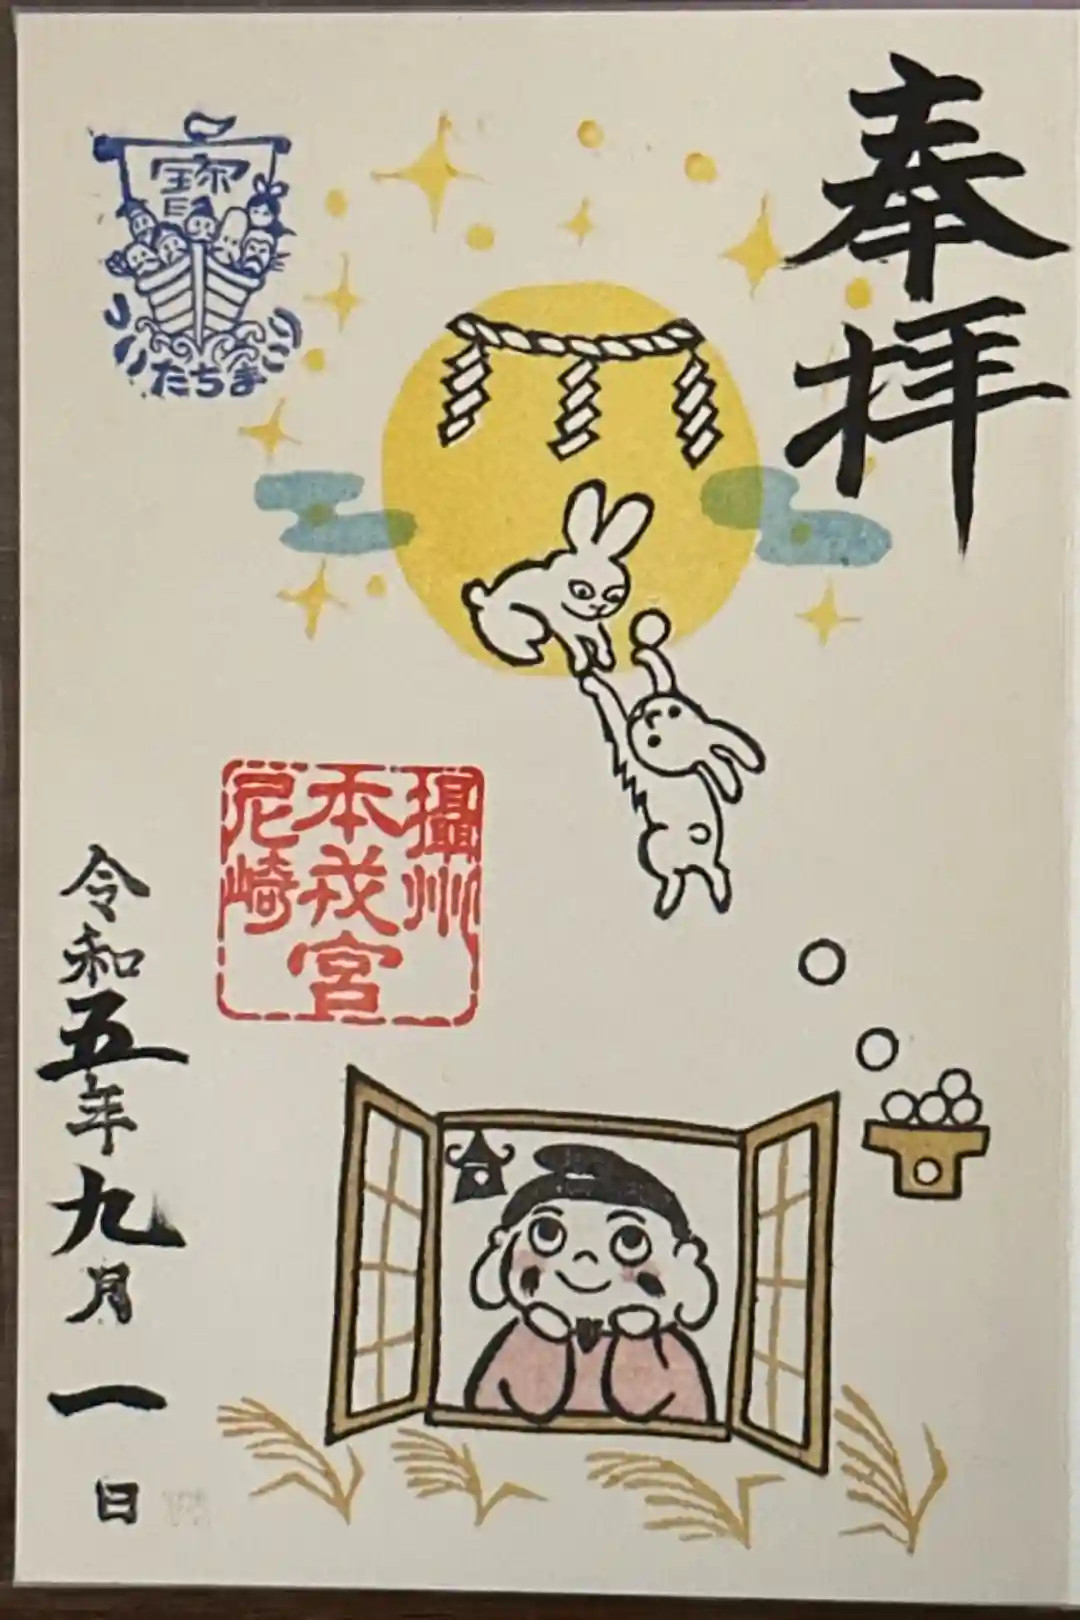 奉拝
寳
たちま
攝州
本戎宮
尼崎
令和五年九月一日